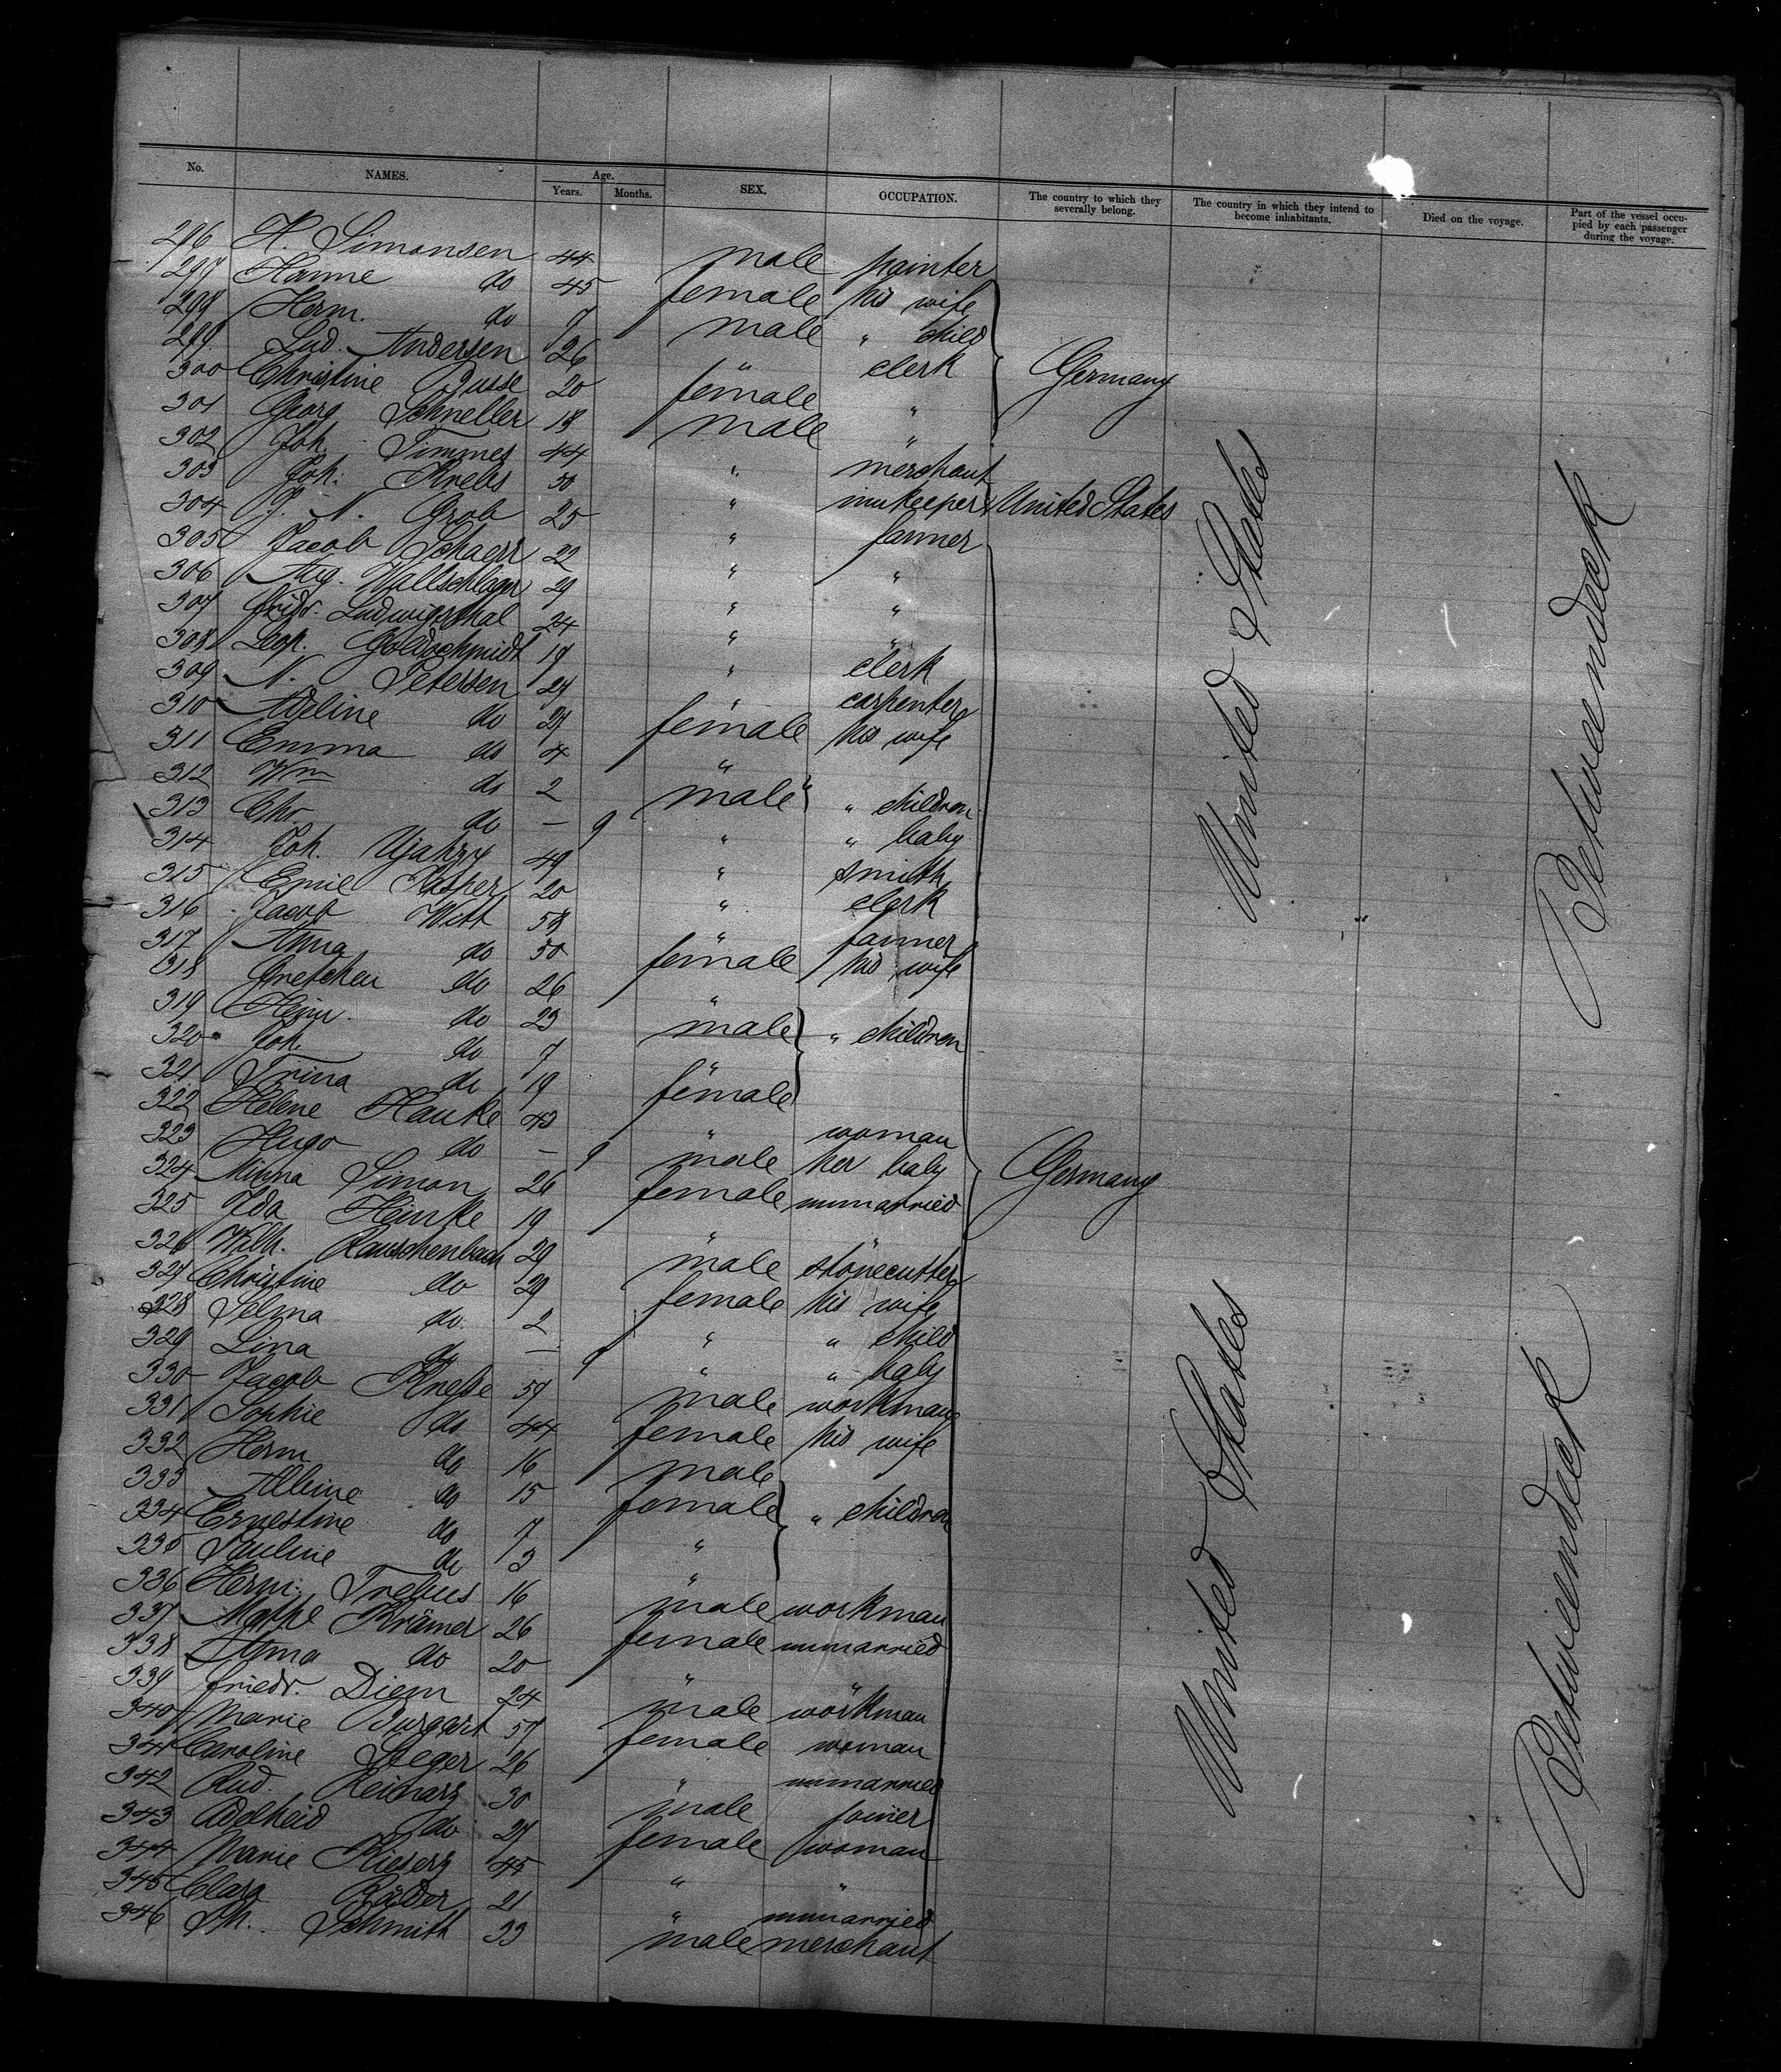 No. NAMES. Age. Years. Months. SEX. OCCUPATION. The country to which they severally belong. The country in which they intend to become inhabitants. Died on the voyage. Part of the vessel occupied by each passenger during the voyage.
296 H. Simonsen 44 male painter
297 Hanne do 45 female his wife
298 Herm. do 7 male " child
299 Lud. Andersen 26 " clerk
300 Christine Busse 20 female "
301 Georg Schneller 18 male "
302 Joh. Timmes 44 " merchant
303 Joh. Krebs 30 " innkeeper
304 J. N. Grob 25 " farmer
305 Jacob Schaerr 22 " "
306 Aug. Wallschlager 29 " "
307 Fridr. Ludwigsthal 24 " "
308 Leop. Goldschmidt 19 " clerk
309 N. Petersen 27 " carpenter
310 Adeline do 27 female his wife
311 Emma do 4 "
312 Wm do 2 male " children
313 Chr. do — 9 " " baby
314 Joh. 49 " smith
315 Emil Kasper 20 " clerk
316 Jacob Witt 58 " farmer
317 Anna do 50 female his wife
318 Gretchen do 26 "
319 Heinr. do 23 male " children
320 Joh. do 7 "
321 Trina do 19 female
322 Helene Hauke 43 " woman
323 Hugo do — 9 male her baby
324 Minna Simon 26 female unmarried
325 Ida Heinke 19 " "
326 Wilh. Rauschenbach 29 male stonecutter
327 Christine do 29 female his wife
328 Selma do 2 " " child
329 Lina do — 9 " " baby
330 Jacob Knesse 57 male workman
331 Sophie do 44 female his wife
332 Herm do 16 male
333 Albine do 15 female " children
334 Ernestine do 7 "
335 Pauline do 3 "
336 Herm. Trebus 16 male workman
337 Krämer 26 female unmarried
338 Anna do 20 " "
339 Friedr. Diem 24 male workman
340 Marie Burgart 57 female woman
341 Caroline Steger 26 " unmarried
342 Rud. Reinarz 30 male joiner
343 Adelheid do 27 female woman
344 Marie 45 " "
345 Clara Räder 21 " unmarried
346 Schmitt 33 male merchant
Germany
United States
Germany
United States
United States
Betweendeck
Betweendeck